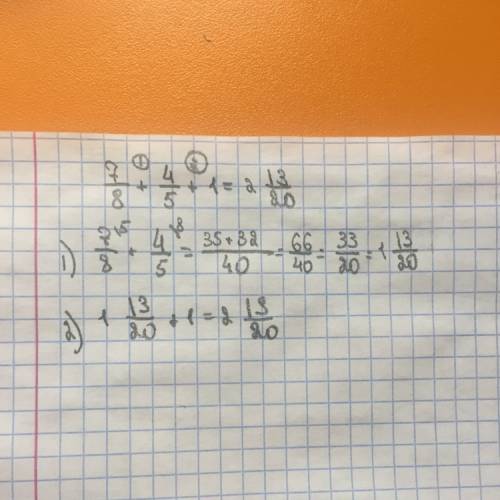 7/8 + 4/5 + 1 = 2 13/20
1) 7/8 + 4/5 = 35+32/40 = 66/40 = 33/20 = 1 13/20
2) 1 13/20 + 1 = 2 13/20